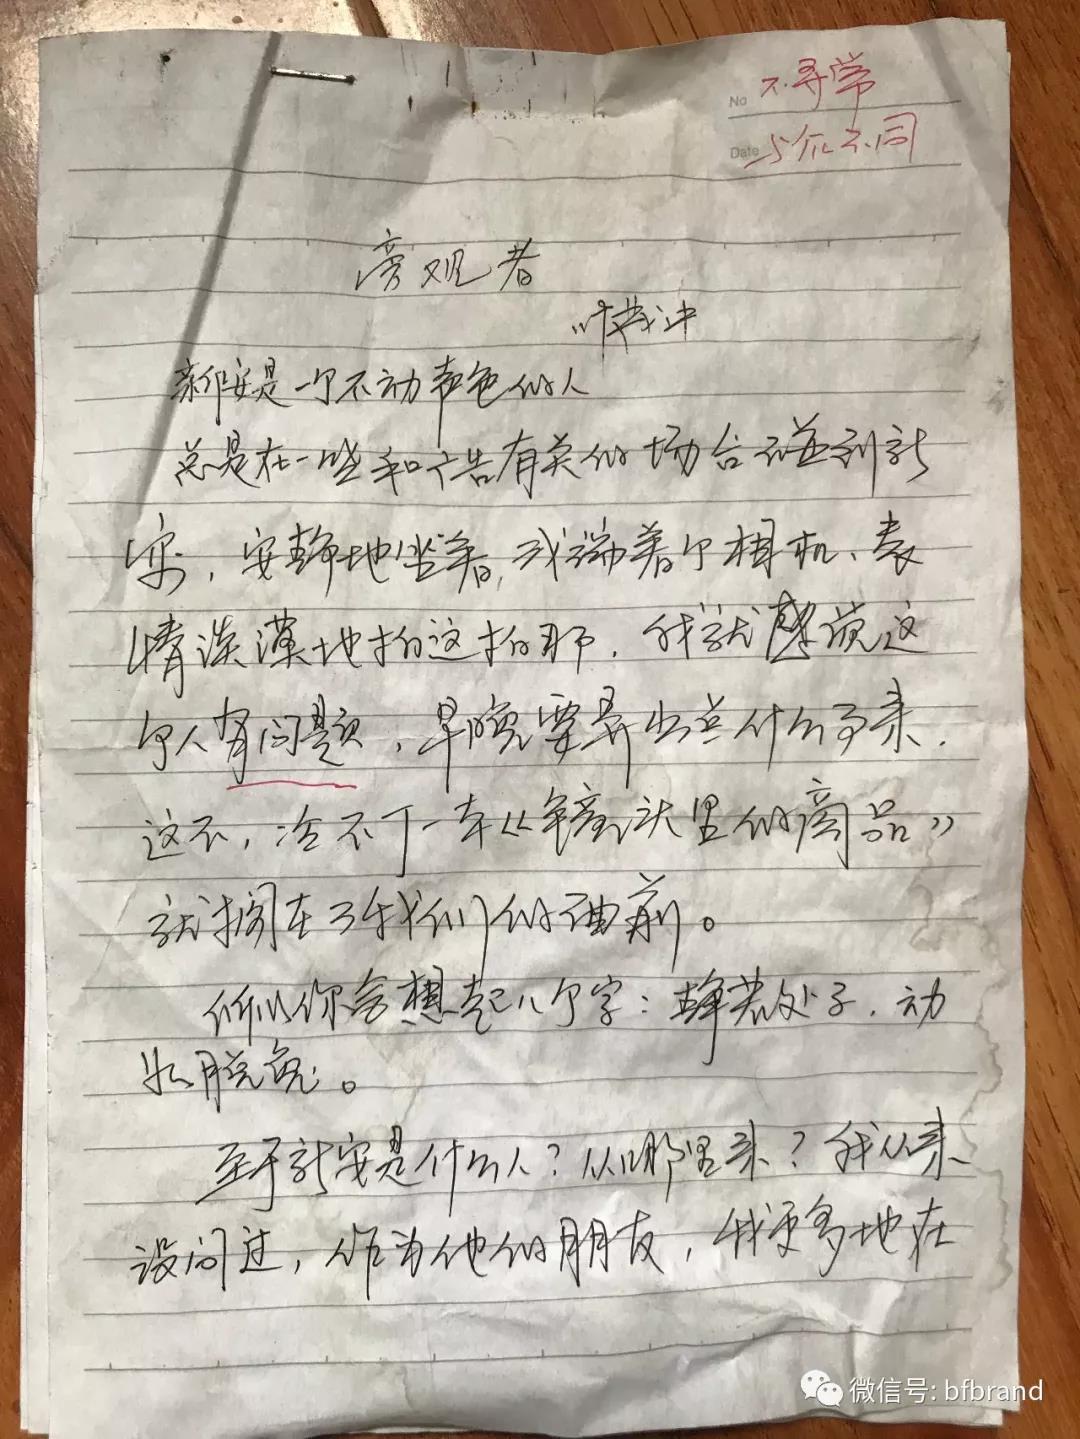 No 不寻常
Date 与众不同
旁观者
叶茂中
新安是一个不动声色的人
总是在一些和广告有关的场合碰到新
安，安静地坐着，或端着个相机、表
情淡漠地拍这拍那，我就感觉这
个人有问题，早晚要弄出点什么事来，
这不，冷不丁一本《镜头里的商品》
就搁在了我们的面前。
所以你会想起几个字：静若处子，动
如脱兔。
至于新安是什么人？从哪里来？我从来
没问过，作为他的朋友，我更多地在
微信号: bfbrand